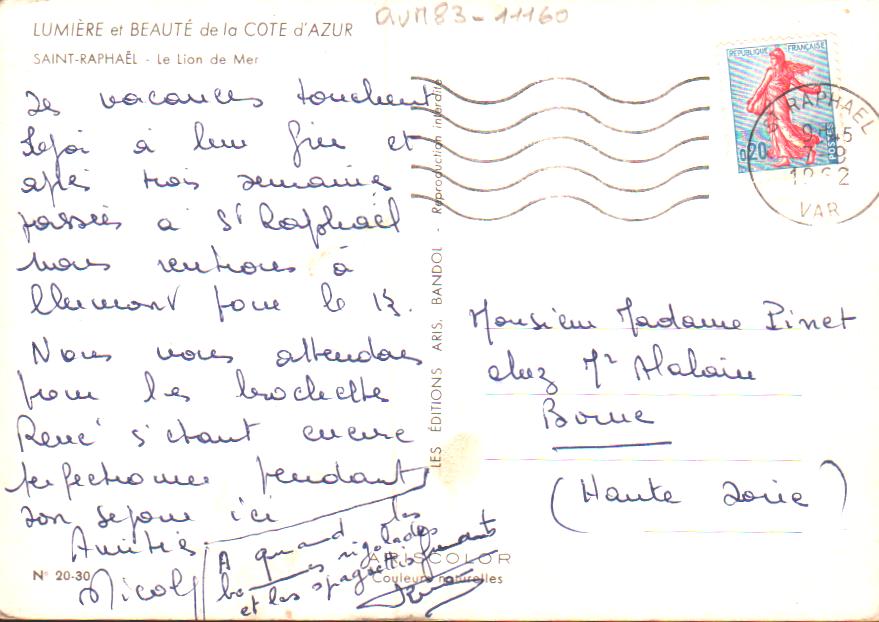 avr83-11160
LUMIÈRE et BEAUTÉ de la COTE d'AZUR
SAINT-RAPHAËL - Le Lion de Mer
Les vacances touchent
déjà à leur fin et
après trois semaines
passées à St Raphaël
nous rentrons à
pour le 13.
Nous vous attendons
pour les brochettes
René s'étant encore
perfectionné pendant
son séjour ici
Amitiés
Nicole
A quand les
bonnes rigolades
et les spaghettis fumants
René
N° 20-30
LES ÉDITIONS ARIS. BANDOL - Reproduction interdite
ARISCOLOR
Couleurs naturelles
REPUBLIQUE FRANÇAISE
0,20
POSTES
ST RAPHAEL
1962
VAR
Monsieur Madame Pinet
chez Mr Alalain
Borne
(Haute Loire)